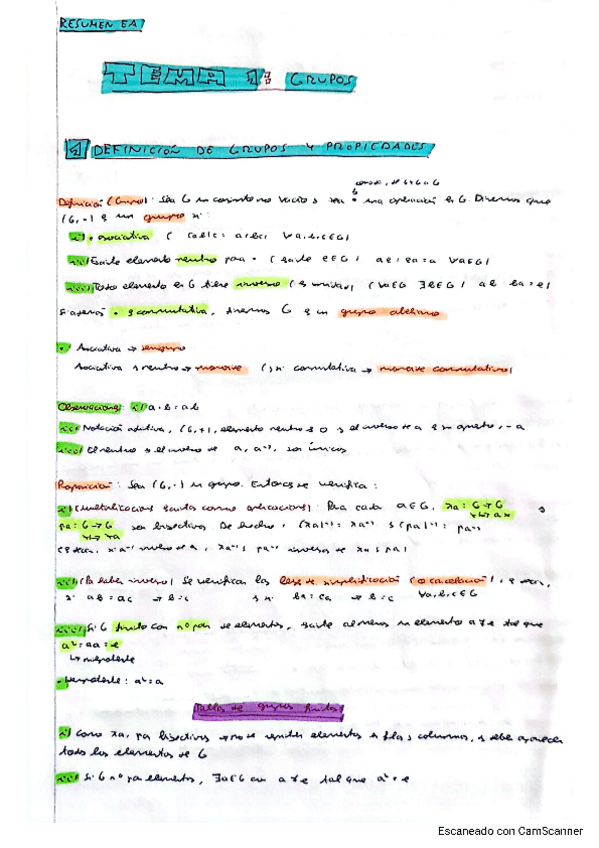 RESUMEN EA
TEMA 1: GRUPOS
1 DEFINICIÓN DE GRUPOS Y PROPIEDADES
Definición (Grupo): Sea G un conjunto no vacío y sea · una operación en G. Diremos que
(G, ·) es un grupo si:
i) · asociativa ( (ab)c = a(bc) ∀a,b,c∈G)
ii) Existe elemento neutro para · (existe e∈G | ae = ea = a ∀a∈G)
iii) Todo elemento en G tiene inverso (∀a∈G ∃b∈G | ab = ba = e)
Si además · es conmutativa, diremos G es un grupo abeliano
· Asociativa → semigrupo
Asociativa y neutro → monoide (y si conmutativa → monoide conmutativo)
Observaciones: i) a·b = ab
ii) Notación aditiva, (G,+), elemento neutro es 0 y el inverso de a es su opuesto, -a
iii) El neutro y el inverso de a, a⁻¹, son únicos
Proposición: Sea (G, ·) un grupo. Entonces se verifica:
i) (Multiplicaciones vistas como aplicaciones): Para cada a∈G, λa: G→G y
x→ax
ρa: G→G son bijectivas. De hecho, (λa)⁻¹ = λa⁻¹ y (ρa)⁻¹ = ρa⁻¹
x→xa
ii) Se verifican las leyes de simplificación (o cancelación),
si ab = ac → b = c y si ba = ca → b = c ∀a,b,c∈G
iii) Si G finito con nº par de elementos, existe al menos un elemento a≠e tal que
a² = aa = e
· Idempotente: a² = a
Tablas de grupos finitos
i) Como λa, ρa bijectivas → no se repiten elementos en filas y columnas, y debe aparecer
todos los elementos de G
ii) Si G nº par elementos, ∃a∈G con a≠e tal que a² = e
Escaneado con CamScanner